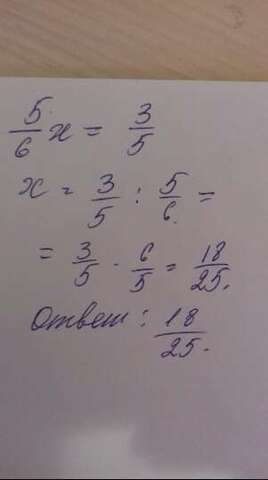 5/6 x = 3/5
x = 3/5 : 5/6 =
= 3/5 · 6/5 = 18/25.
Ответ: 18/25.